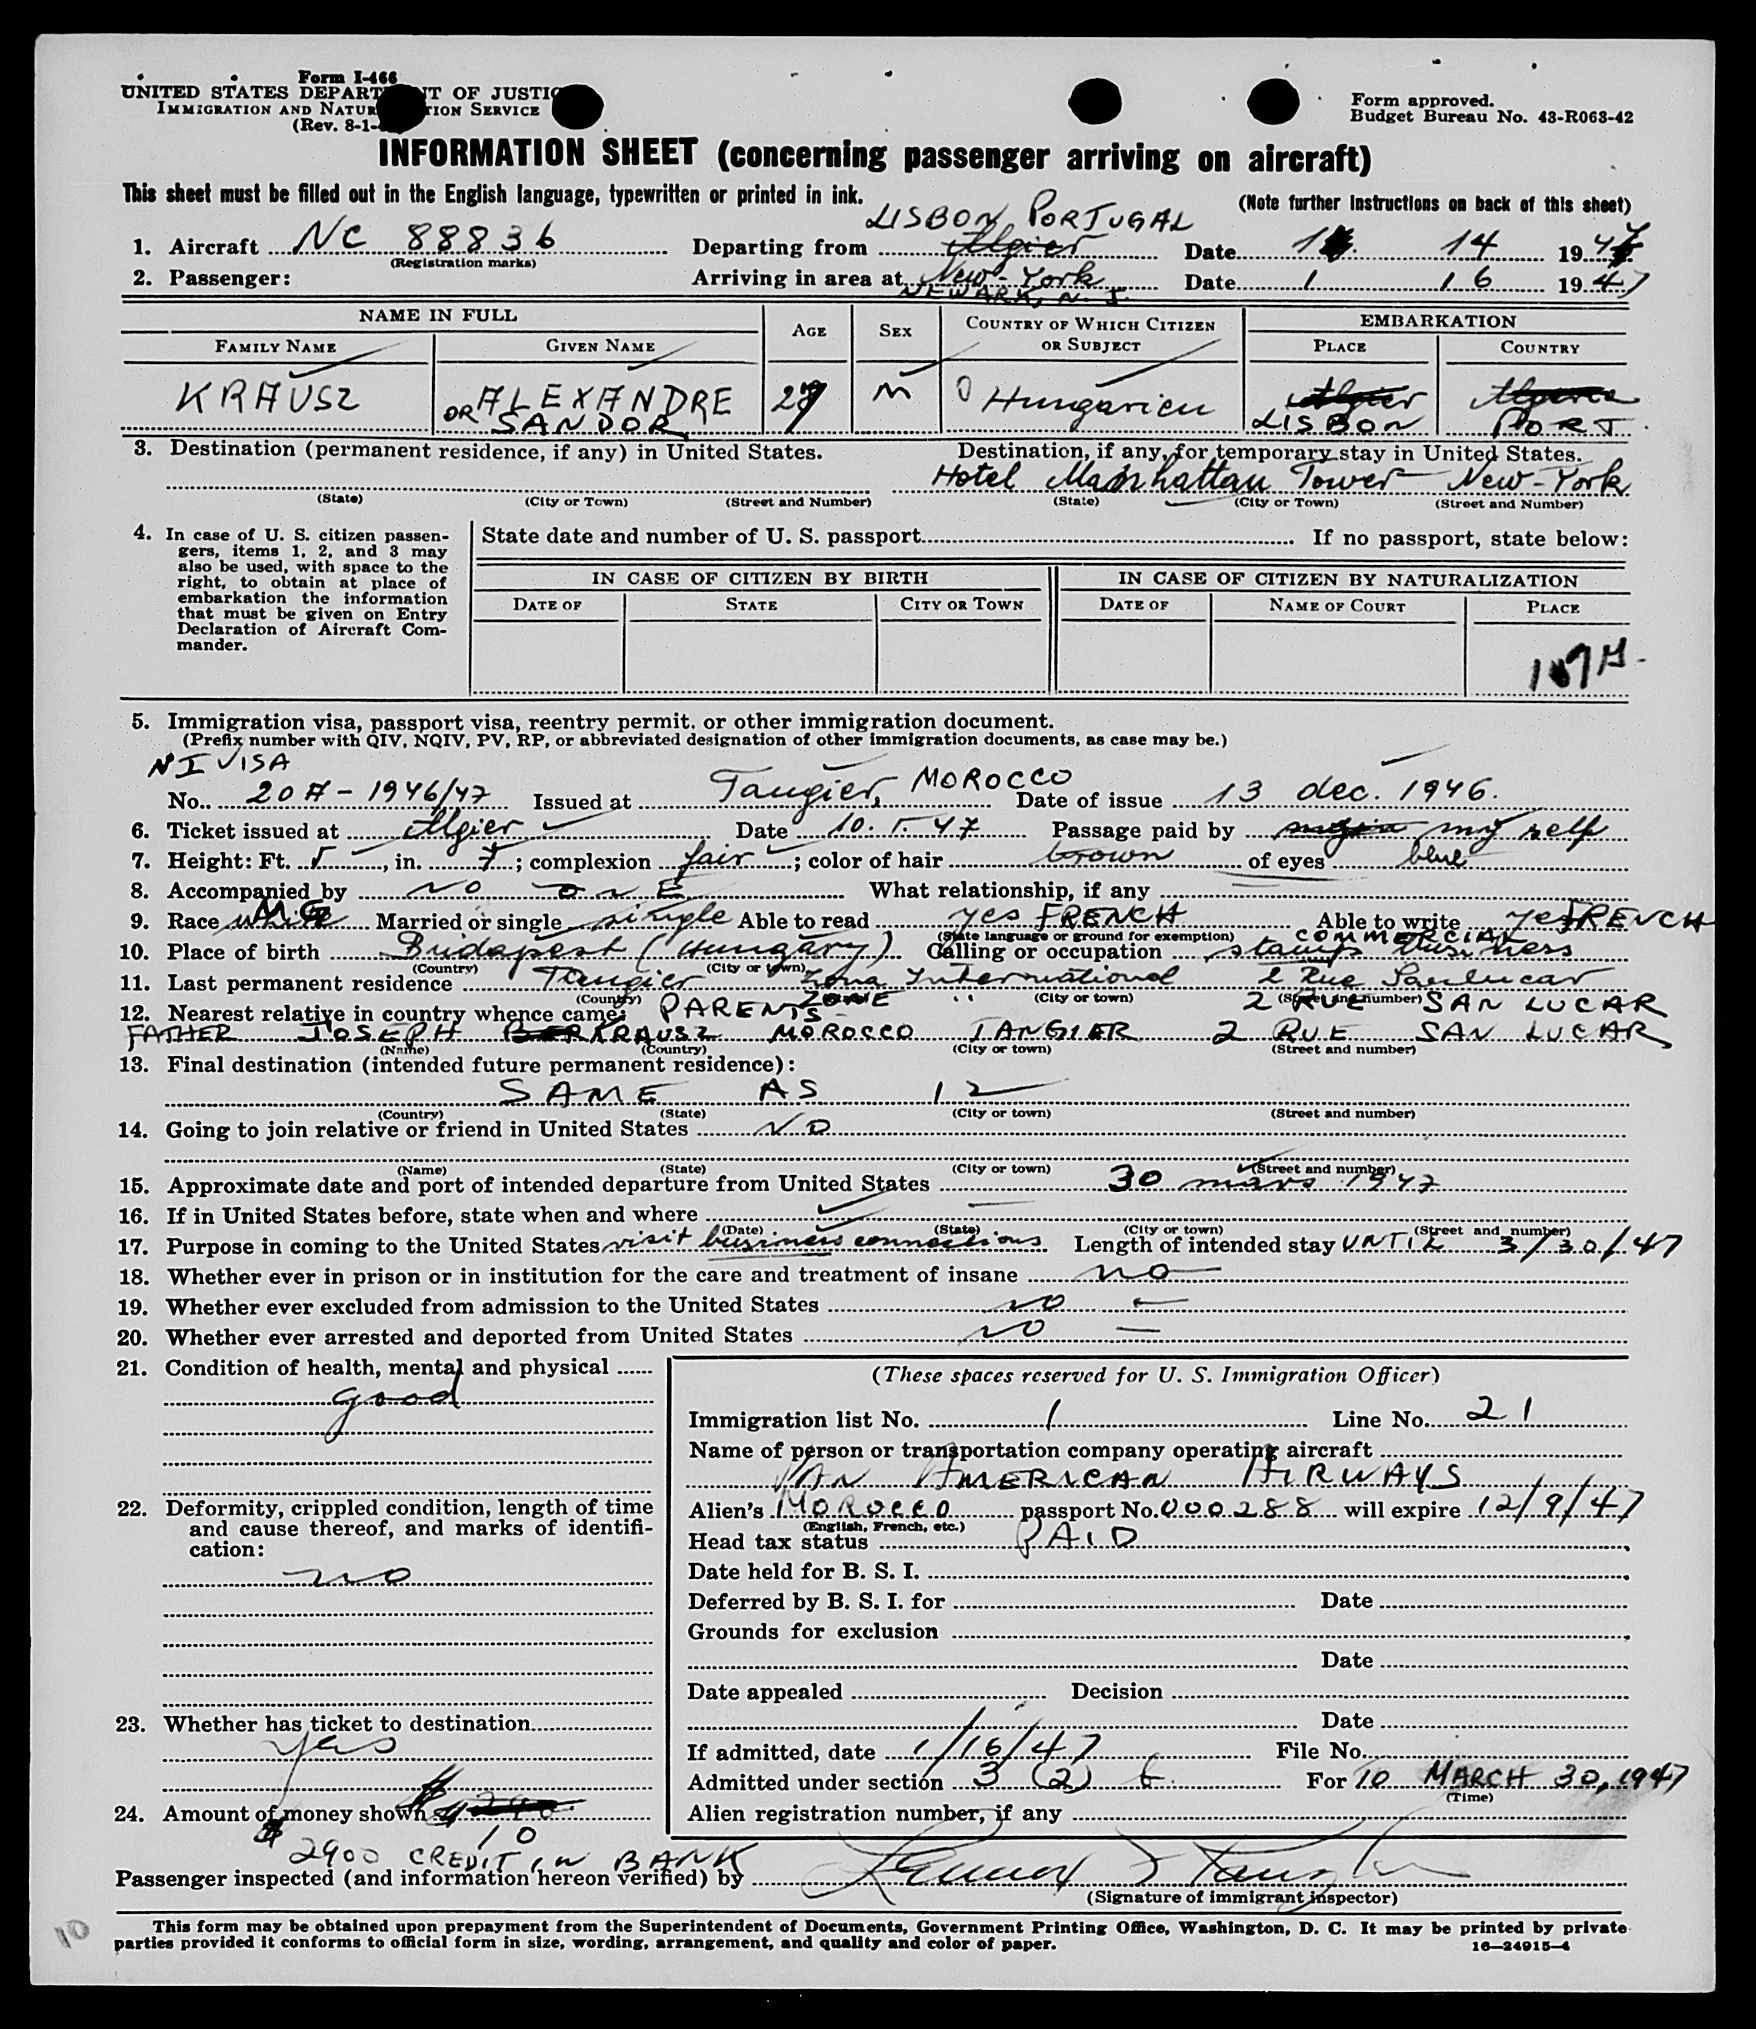 Form I-466
UNITED STATES DEPARTMENT OF JUSTICE
IMMIGRATION AND NATURALIZATION SERVICE
(Rev. 8-1-
Form approved.
Budget Bureau No. 43-R063-42
INFORMATION SHEET (concerning passenger arriving on aircraft)
This sheet must be filled out in the English language, typewritten or printed in ink.
(Note further instructions on back of this sheet)
LISBON, PORTUGAL
1. Aircraft NC 88836 Departing from Algier Date 1 14 1947
(Registration marks)
2. Passenger: Arriving in area at New-York Date 1 16 1947
NEWARK, N. J.
NAME IN FULL AGE SEX COUNTRY OF WHICH CITIZEN OR SUBJECT EMBARKATION
FAMILY NAME GIVEN NAME PLACE COUNTRY
KRAUSZ ALEXANDRE 27 M Hungarien Algier Algeria
OR SANDOR LISBON PORT
3. Destination (permanent residence, if any) in United States. Destination, if any, for temporary stay in United States.
Hotel Manhattan Tower New-York
(State) (City or Town) (Street and Number) (State) (City or Town) (Street and Number)
4. In case of U. S. citizen passengers, items 1, 2, and 3 may also be used, with space to the right, to obtain at place of embarkation the information that must be given on Entry Declaration of Aircraft Commander.
State date and number of U. S. passport If no passport, state below:
IN CASE OF CITIZEN BY BIRTH IN CASE OF CITIZEN BY NATURALIZATION
DATE OF STATE CITY OR TOWN DATE OF NAME OF COURT PLACE
5. Immigration visa, passport visa, reentry permit, or other immigration document.
(Prefix number with QIV, NQIV, PV, RP, or abbreviated designation of other immigration documents, as case may be.)
NI VISA
No. 207-1946/47 Issued at Tangier, MOROCCO Date of issue 13 dec. 1946.
6. Ticket issued at Algier Date 10. 1. 47 Passage paid by my self
7. Height: Ft. 5, in. 7; complexion fair; color of hair brown of eyes blue
8. Accompanied by NO ONE What relationship, if any
9. Race white Married or single single Able to read yes FRENCH Able to write yes FRENCH
(State language or ground for exemption)
COMMERCIAL
10. Place of birth Budapest (Hungary) Calling or occupation stamps business
(Country) (City or town)
11. Last permanent residence Tangier Zona International 2 Rue Sanlucar
(Country) ZONE " (City or town) (Street and number) 2 RUE SAN LUCAR
12. Nearest relative in country whence came: PARENTS-
FATHER JOSEPH KRAUSZ MOROCCO TANGIER 2 RUE SAN LUCAR
(Name) (Country) (City or town) (Street and number)
13. Final destination (intended future permanent residence):
SAME AS 12
(Country) (State) (City or town) (Street and number)
14. Going to join relative or friend in United States NO
(Name) (State) (City or town) (Street and number)
15. Approximate date and port of intended departure from United States 30 mars 1947
16. If in United States before, state when and where
(Date) (State) (City or town) (Street and number)
17. Purpose in coming to the United States visit business connections Length of intended stay UNTIL 3/30/47
18. Whether ever in prison or in institution for the care and treatment of insane no
19. Whether ever excluded from admission to the United States no
20. Whether ever arrested and deported from United States no
21. Condition of health, mental and physical
good
22. Deformity, crippled condition, length of time and cause thereof, and marks of identification:
no
23. Whether has ticket to destination
yes
24. Amount of money shown
$ 10
2900 CREDIT IN BANK
(These spaces reserved for U. S. Immigration Officer)
Immigration list No. 1 Line No. 21
Name of person or transportation company operating aircraft
PAN AMERICAN AIRWAYS
Alien's MOROCCO passport No. 000288 will expire 12/9/47
(English, French, etc.)
Head tax status PAID
Date held for B. S. I.
Deferred by B. S. I. for Date
Grounds for exclusion
Date
Date appealed Decision
Date
If admitted, date 1/16/47 File No.
Admitted under section 3 (2) For TO MARCH 30, 1947
(Time)
Alien registration number, if any
Passenger inspected (and information hereon verified) by
(Signature of immigrant inspector)
This form may be obtained upon prepayment from the Superintendent of Documents, Government Printing Office, Washington, D. C. It may be printed by private
parties provided it conforms to official form in size, wording, arrangement, and quality and color of paper.
16—24915-4
10